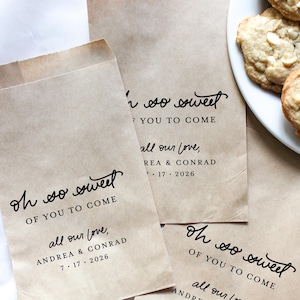 oh so sweet
OF YOU TO COME
all our love,
ANDREA & CONRAD
7 · 17 · 2026
oh so sweet
OF YOU TO COME
all our love,
ANDREA & CONRAD
7 · 17 · 2026
oh so sweet
OF YOU TO COME
all our love,
ANDREA & CONRAD